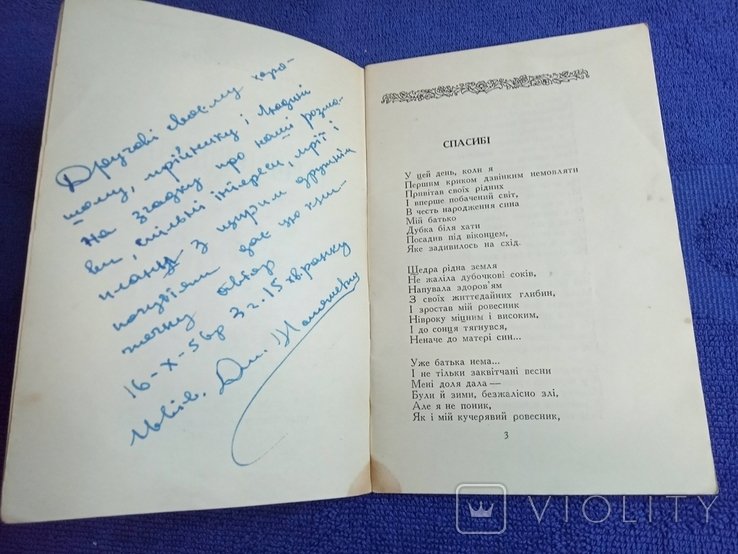 Другові своєму хоро-
шому, мрійнику і людині
На згадку про наші розмо-
ви, спільні інтереси, мрії і
плани з щирим дружнім
почуттям дає цю кни-
жечку автор
16-X-56р 3 г. 15 хв. ранку
Львів.
СПАСИБІ
У цей день, коли я
Першим криком давінким немовляти
Привітав своїх рідних
І вперше побачений світ,
В честь народження сина
Мій батько
Дубка біля хати
Посадив під віконцем,
Яке задивилось на схід.
Щедра рідна земля
Не жаліла дубочкові соків,
Напувала здоров'ям
З своїх життєдайних глибин,
І зростав мій ровесник
Нівроку міцним і високим,
І до сонця тягнувся,
Неначе до матері син...
Уже батька нема...
І не тільки заквітчані весни
Мені доля дала—
Були й зими, безжалісно злі,
Але я не поник,
Як і мій кучерявий ровесник,
3
VIOLITY